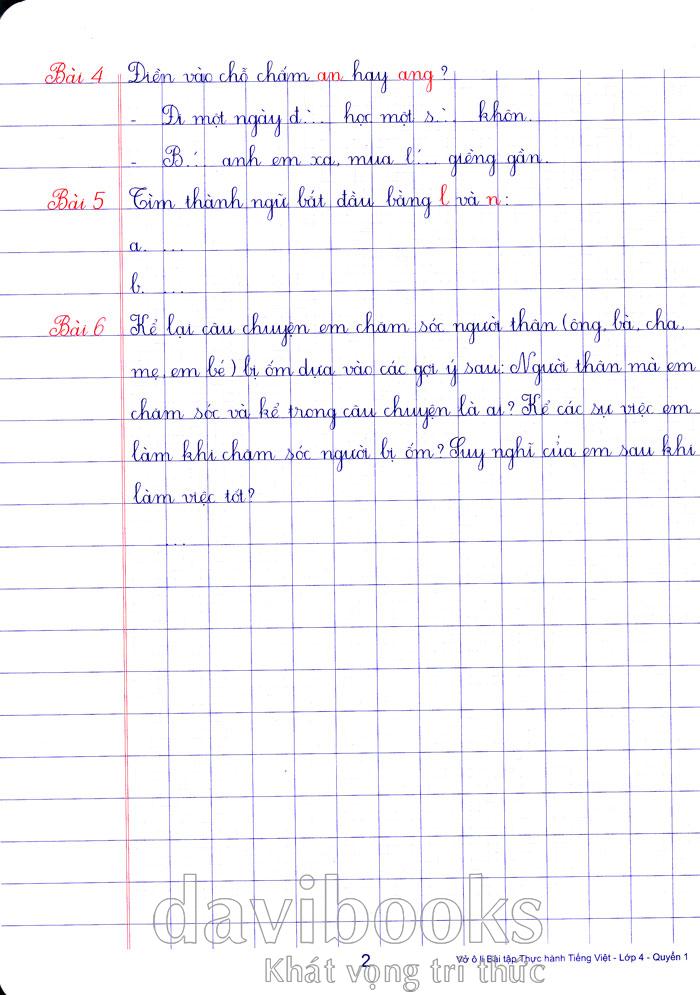 Bài 4 Điền vào chỗ chấm an hay ang?
- Đi một ngày đ... học một s... khôn.
- B... anh em xa, mua l... giềng gần.
Bài 5 Tìm thành ngữ bắt đầu bằng l và n:
a. ...
b. ...
Bài 6 Kể lại câu chuyện em chăm sóc người thân (ông, bà, cha,
mẹ, em bé) bị ốm dựa vào các gợi ý sau: Người thân mà em
chăm sóc và kể trong câu chuyện là ai? Kể các sự việc em
làm khi chăm sóc người bị ốm? Suy nghĩ của em sau khi
làm việc tốt?
...
davibooks
Khát vọng tri thức
2 Vở ô li Bài tập Thực hành Tiếng Việt - Lớp 4 - Quyển 1